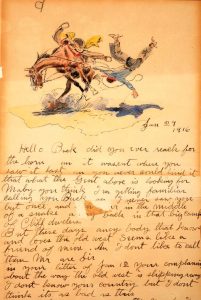 Jan 27
1916
Hello Dick did you ever reach for
the horn and it wasent where you
saw it last and you never could find it
that what the gent above is looking for
Maby you think I'm getting familiar
calling you Dick as I never saw you
but once, and in the middle
of a snake in that big camp
of Cliff dwellers
But these days any body that knows
and loves the old west seems like a
friend of mine. An I dont like to call
them Mr are Sir
in your letter of Jan 12 your complaining
about the way the old west is slipping away
I dont know your country but I dont
think its as bad as this